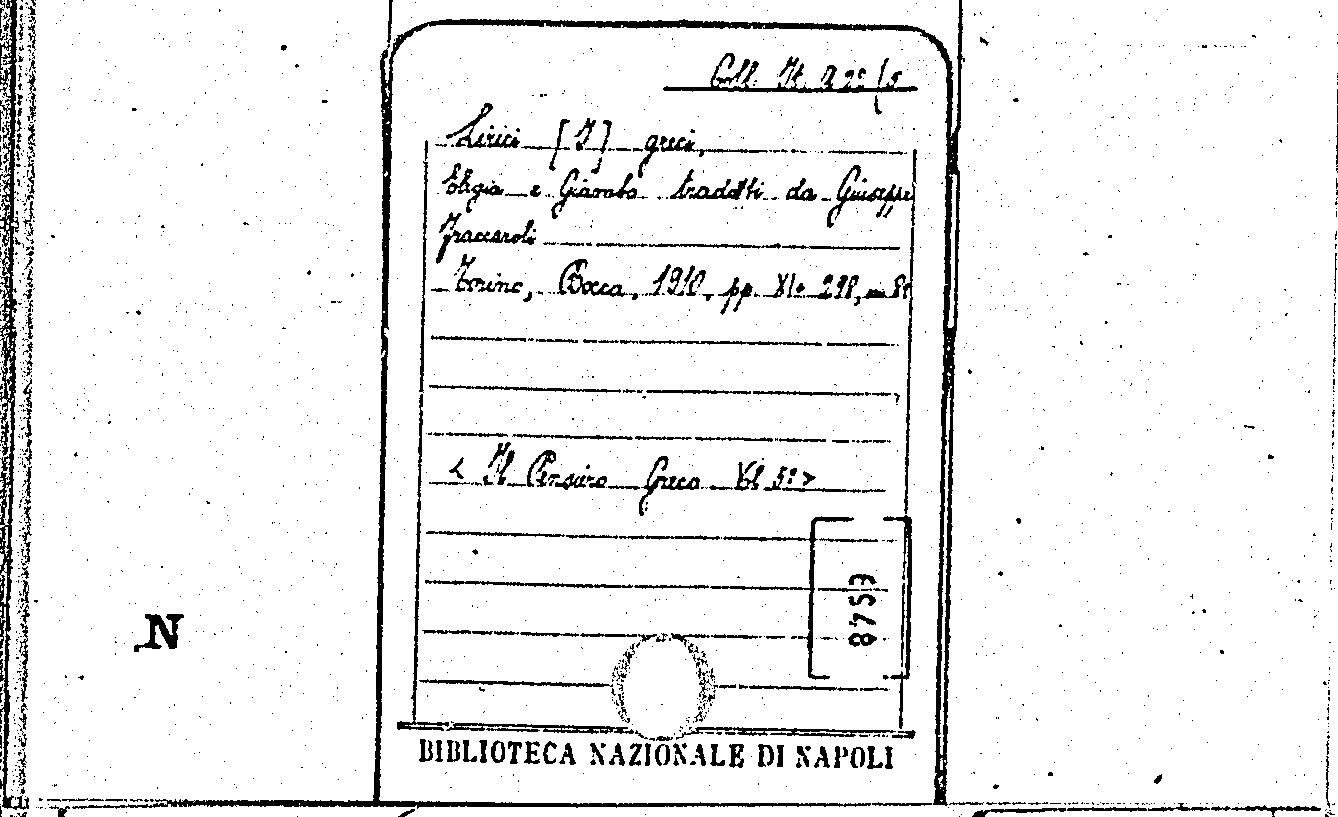 Coll. It. A 22 (5
Lirici [I] greci,
Elegia e Giambo tradotti da Giuseppe
Fraccaroli
Torino, Bocca, 1910, pp. XI- 298, in 8º
< Il Pensiero Greco Vol 5º >
8753
N
BIBLIOTECA NAZIONALE DI NAPOLI